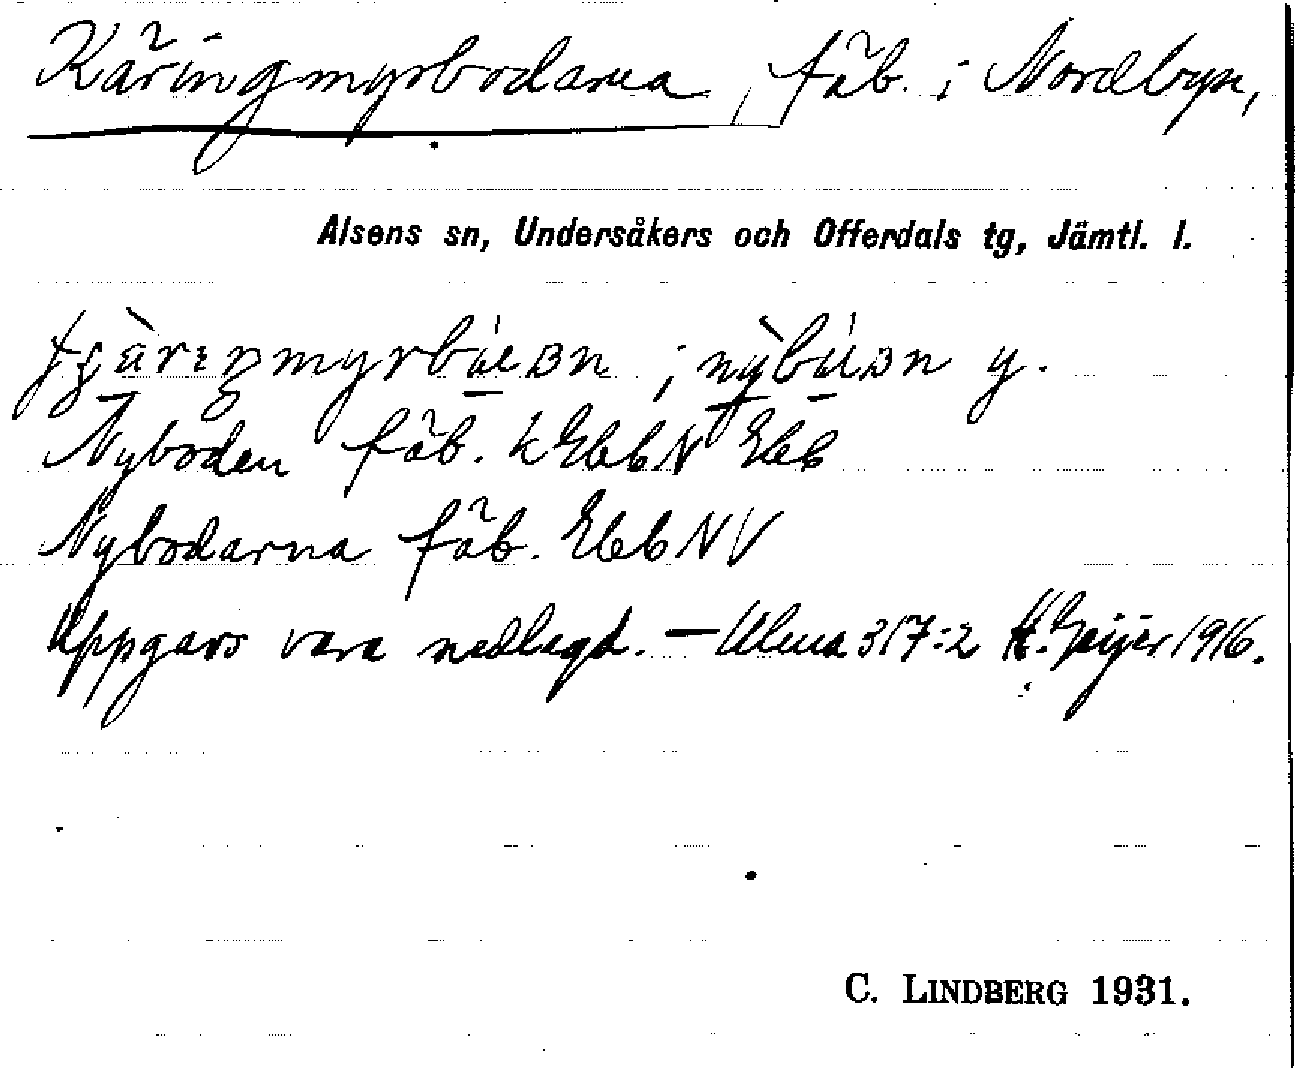 Käringmyrbodarna, fäb. i Nordbyn,
Alsens sn, Undersåkers och Offerdals tg, Jämtl. l.
y.
Nyboden fäb. k EbbN Ebb
Nybodarna fäb. Ebb NV
Uppgavs vara nedlagd. — Ulma 317:2 H. Geijer 1916.
C. LINDBERG 1931.